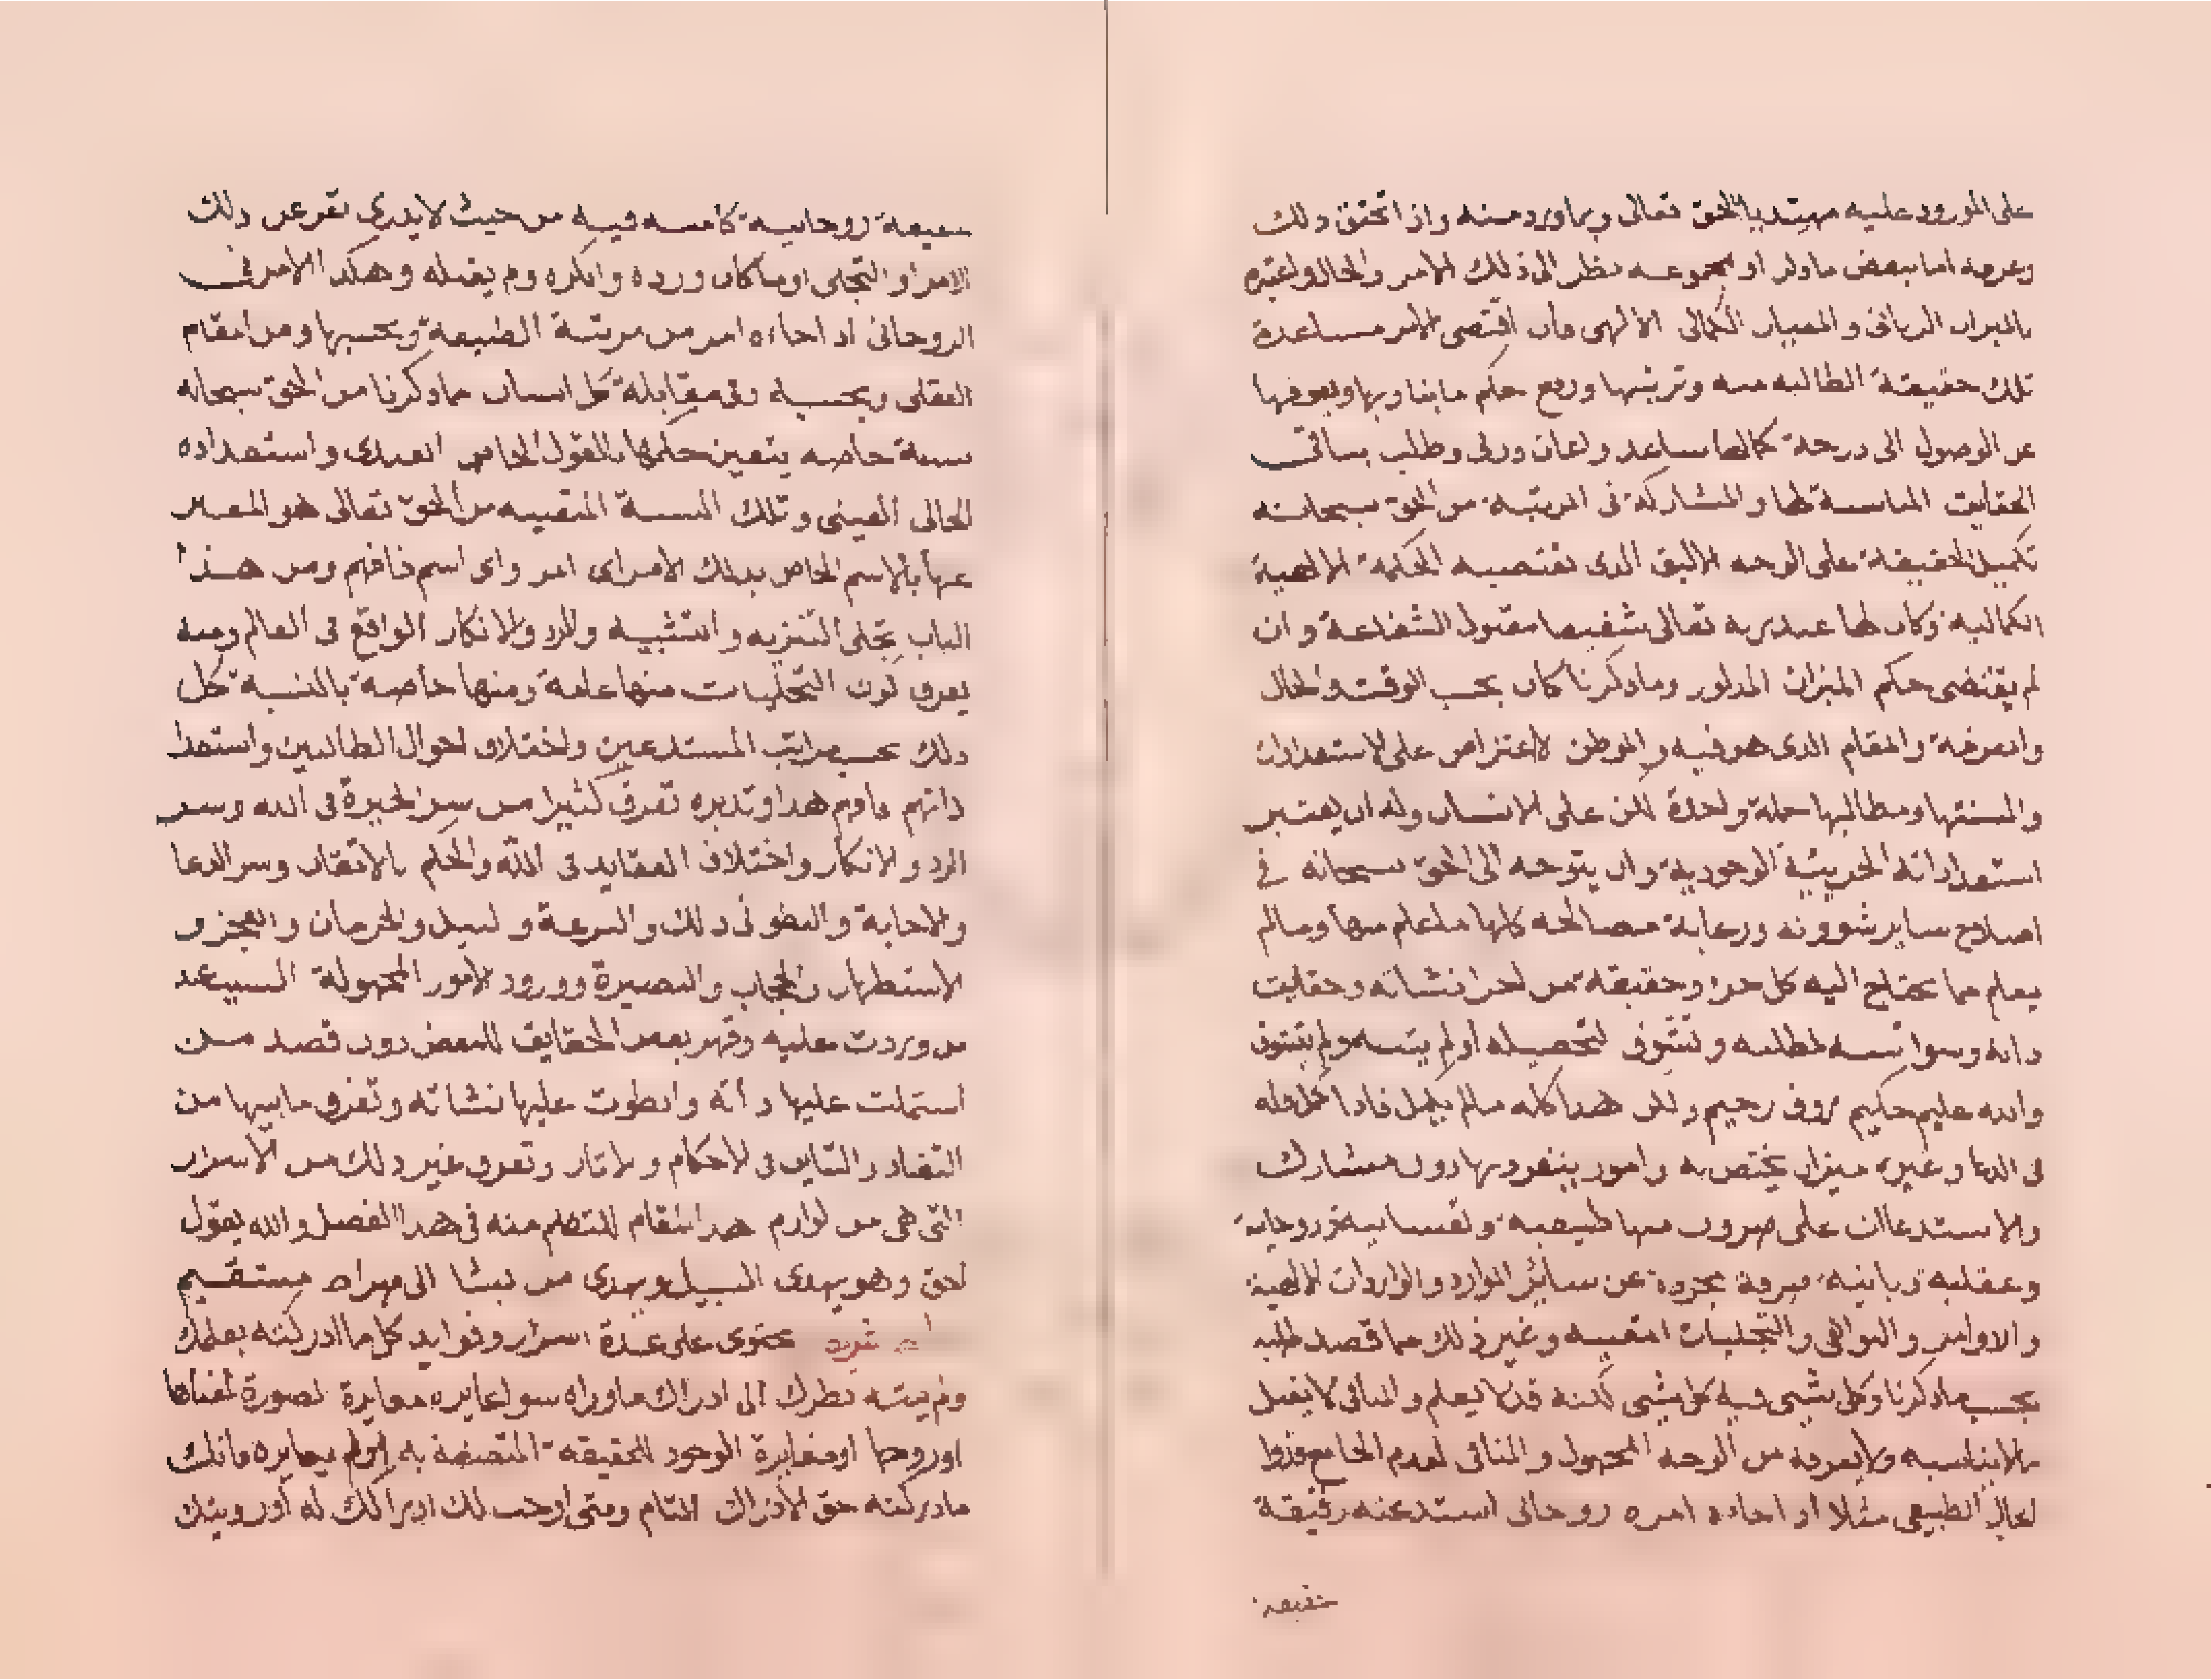 على المورود عليه مهتديا بالحق تعالى وبما ورد منه واذا تحقق ذلك
وعرفه اما ببعض ماذكر او بمجموعه نظر الى ذلك الامر والحال واعتبره
بالميزان الربانى والمعيار الكمالى الالهى فان اقتضى الامر مساعدة
تلك حقيقة الطالبه منه وتربيتها ورفع حكم ما ينا ويها ويعوقها
عن الوصول الى درجة كمالها ساعد واعان ورقى وطلب بباقى
الحقايق المناسبة لها والمشاركة فى المرتبة من الحق سبحانه
تكميل الحقيقة على الوجه الاليق الذى تقتضيه الحكمة الالهية
الكمالية وكان لها عند ربه تعالى شفيعا مقبول الشفاعة وان
لم يقتضى حكم الميزان المذكور وما ذكرنا كان بحسب الوقت والحال
والمعرفة والمقام الذى هو فيه والموطن لاعتراض على الاستعدادات
والسنتها ومطالبها جملة واحدة لكن على الانسان وله ان يعتبر
استعداداته الجزيئية الوجودية وان يتوجه الى الحق سبحانه في
اصلاح ساير شوونه ورعاية مصالحه كلها ما علم منها ومالم
يعلم مما يحتاج اليه كل جزء وحقيقة من اجزا نشاته وحقايق
ذاته وسوا تنبه لمطلبه وتشوف لتحصيله أو لم يتنبه ولم يتشوف
والله عليم حكيم رووف رحيم ولكن هذا كله مالم يكمل فاذا كمل فله
فى الدعا وغيره ميزان يختص به وامور ينفرد بها دون مشارك
والاستدعاات على ضروب منها طبيعيه ونفسانيه وروحانية
وعقليه ربانيه صرفة مجردة عن سائر الموارد والواردات الالهية
والاوامر والنواهى والتجليات الغيبيه وغير ذلك مما قصد طلبه
بحسب ماذكرنا وكل شيى فيه كل شيى لكنه قد لا يعلم والمنافى لا يقبل
مالايناسبه ولايعرفه من الوجه المجهول والمنافى لعدم الجامع
لحال الطبيعى مثلا اذا جاءه امره روحانى استدعته رقيقة
حقيقة
حقيقة روحانية كامنه فيه من حيث لايدرى نفر عن ذلك
الامر او التجلى اوما كان ورده وانكره ولم يقبله وهكذا الامر فى
الروحانى اذا جاءه امر من مرتبة الطبيعة وبحسبها ومن امقام
العقلى وبحسبه وفى مقابلة كل انسان مما ذكرنا من الحق سبحانه
نسبة خاصه يتعين حكمها بالقول الخاص العبدى واستعداده
الحالى العينى وتلك النسبة المتعينه من الحق تعالى هو المعبر
عنها بالاسم الخاص بذلك الامر اى امر واى اسم فافهم ومن هذا
الباب تجلى التنزيه والتشبيه والرد والانكار الواقع فى العالم ومنه
يعرف كون التجليات منها عامة ومنها خاصة بالنسبة كل
ذلك بحسب مراتب المستدعين واختلاف احوال الطالبين واستعدا
داتهم فافهم هذا وتدبره تعرف كثيرا من سر الحيرة فى الله وسر
الرد والانكار واختلاف العقايد فى الله والحكم بالاتقان وسر الدعا
والاجابة والبطو فى ذلك والسرعة و لنيل والحرمان والعجز و
الاستظهار والحجاب والبصيرة وورود الامور المجهولة السبب عند
من وردت عليه وقهر بعض الحقايق للبعض دون قصد من
اشتملت عليها ذاته وانطوت عليها نشاته وتعرف ما بينها من
التضاد والتباين فى الاحكام والاثار وتعرف غير ذلك من الاسرار
التى هى من لوازم هذا المقام المتكلم منه فى هذا الفصل والله يقول
لحق وهو يهدى السبيل ويهدى من يشا الى صراط مستقيم
يحتوى على عدة اسرار وفوايد كل ما ادركته بعلمك
ولم يتنه نظرك الى ادراك ماوراه سوا غايره مغايرة لصورة لمعناها
اوروحا اومغايرة الوجود للحقيقه المتصفة به ام لم يغايره فانك
ماادركته حق الادراك التام ومتى اوجب لك ادراكك له اورويتك